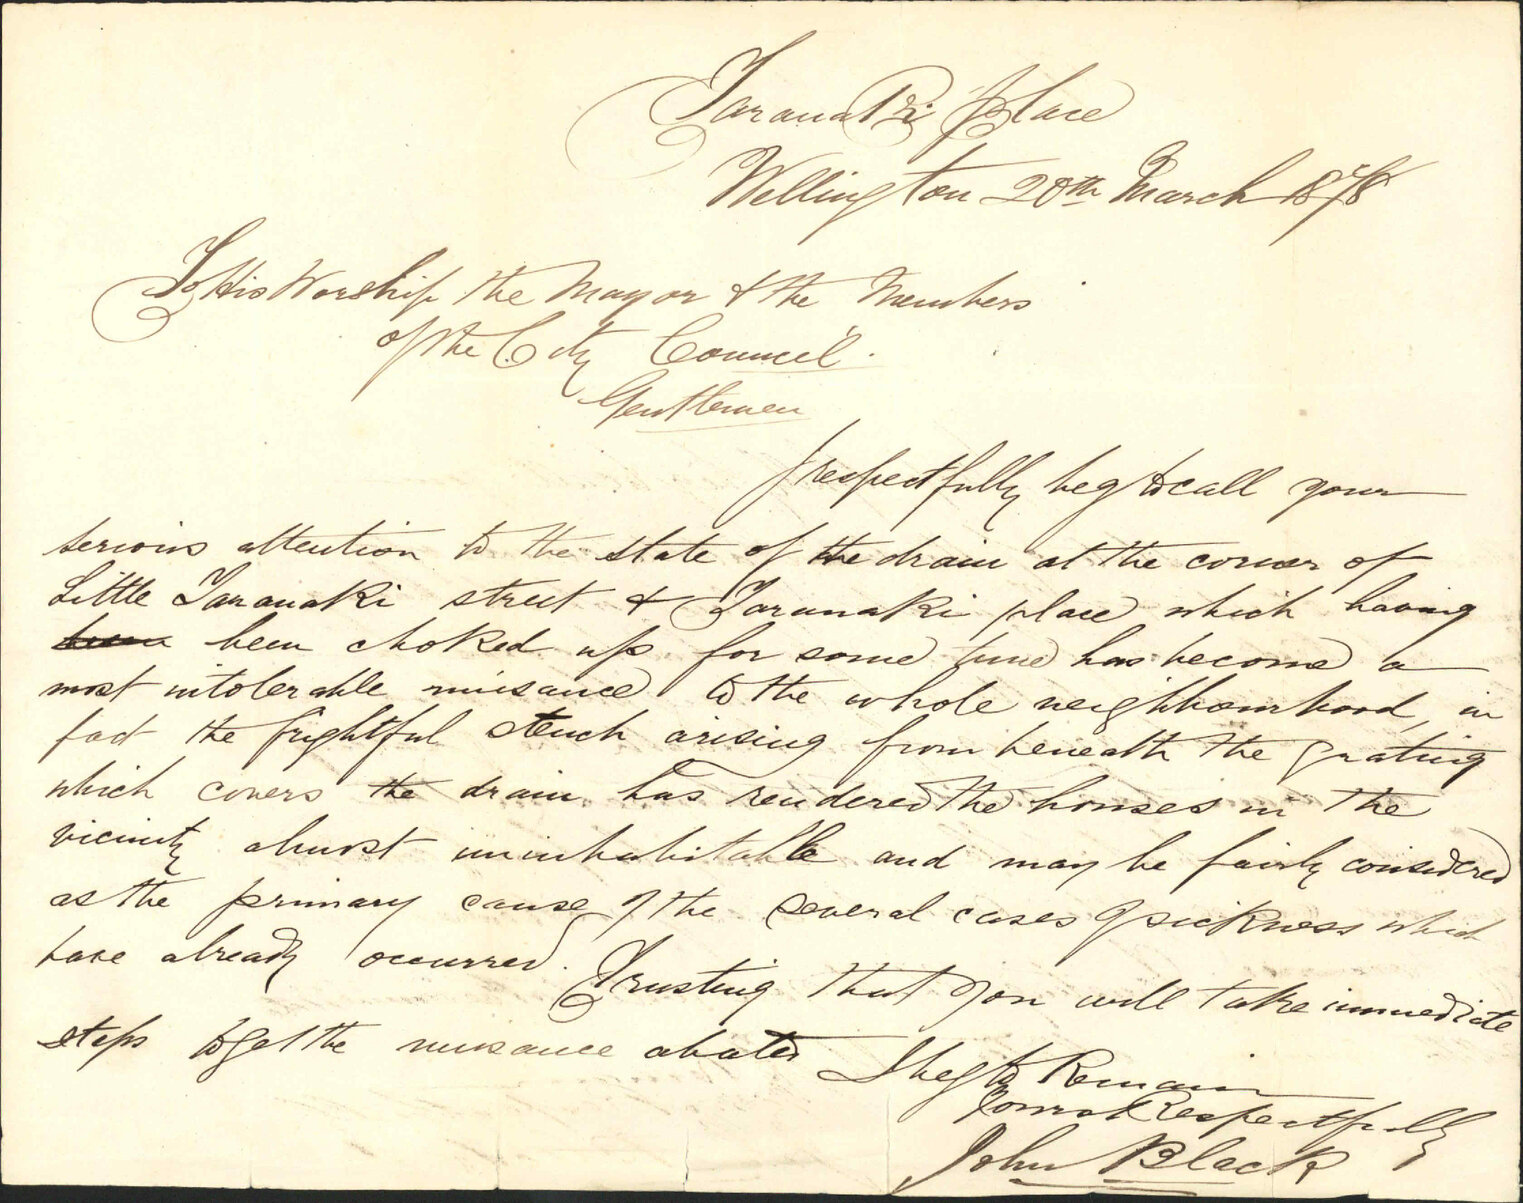 Taranaki place
Wellington 20th March 1878
To His Worship the Mayor & the Members
of the City Council.
Gentlemen
I respectfully beg to call your
serious attention to the state of the drain at the corner of
Little Taranaki street & Taranaki place which having
been been choked up for some time has become a
most intolerable nuisance to the whole neighbourhood, in
fact the frightful stench arising from beneath the grating
which covers the drain has rendered the houses in the
vicinity almost uninhabitable and may be fairly considered
as the primary cause of the several cases of sickness which
have already occurred. Trusting that you will take immediate
steps to get the nuisance abated I beg to Remain
Yours Respectfully
John Black